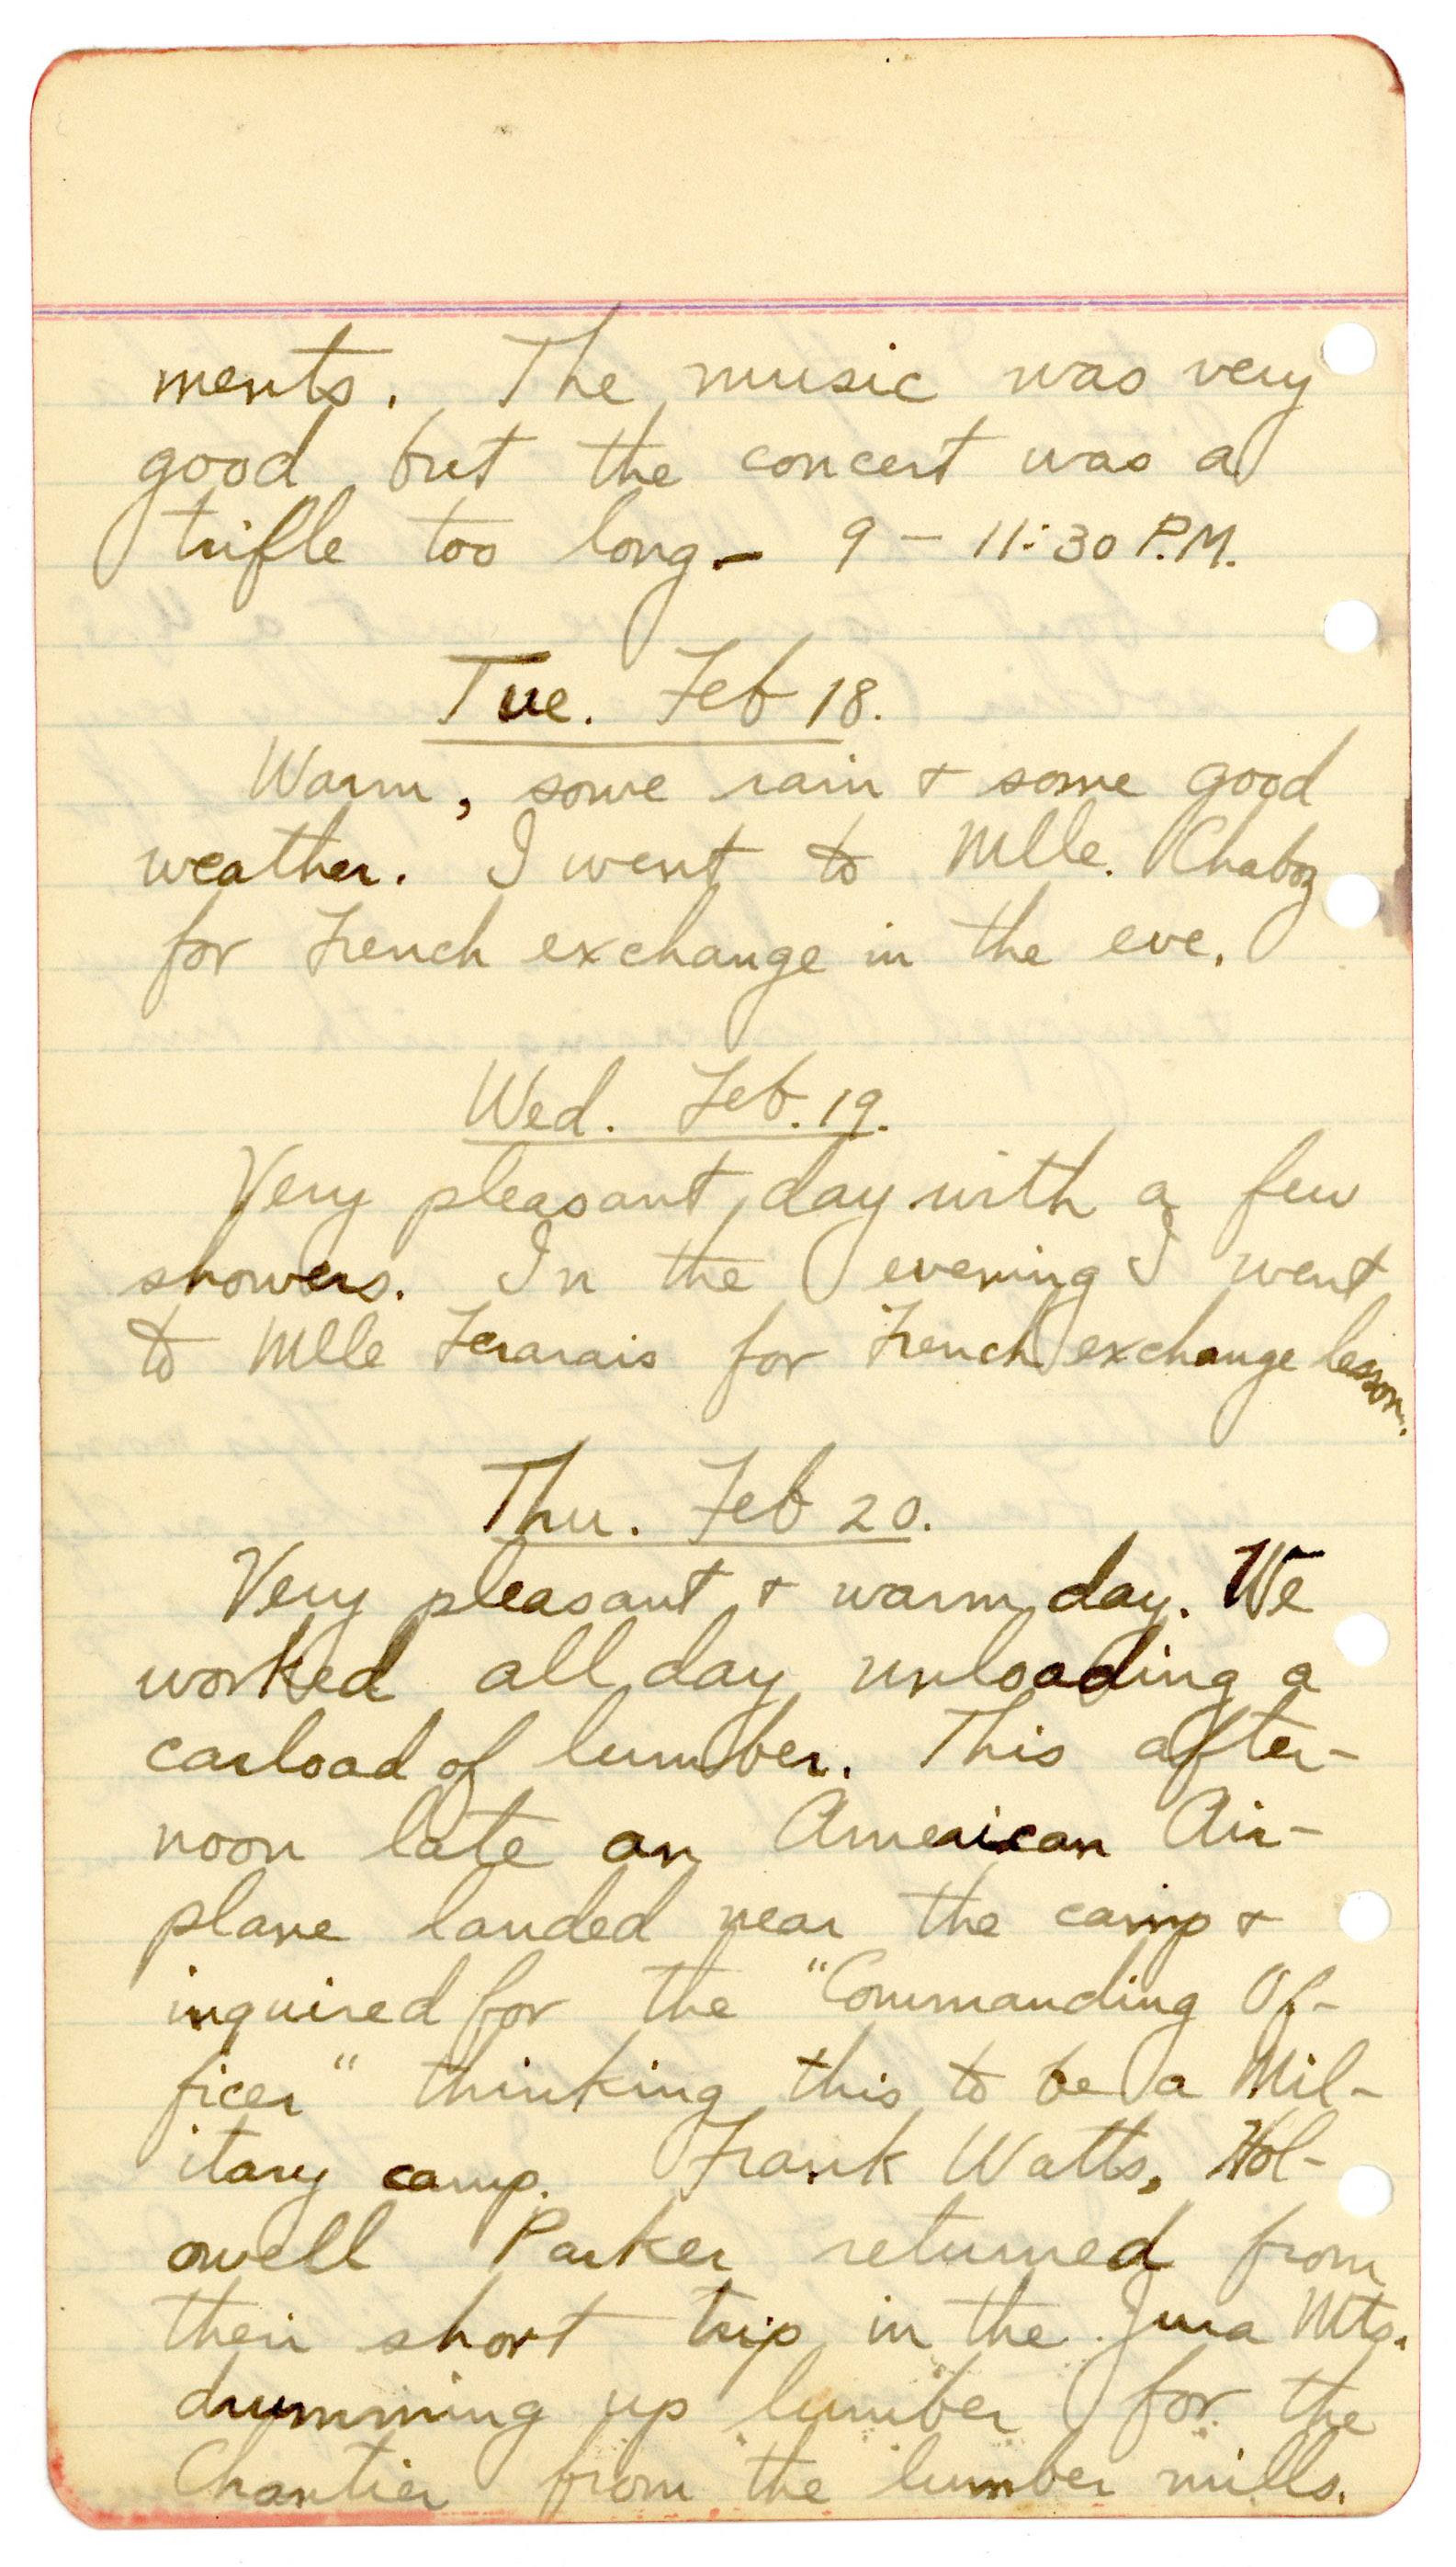 ments. The music was very
good but the concert was a
trifle too long – 9 – 11:30 P.M.
Tue. Feb 18.
Warm, some rain + some good
weather. I went to Mlle. Chaboz
for French exchange in the eve.
Wed. Feb. 19.
Very pleasant day with a few
showers. In the evening I went
to Mlle Ferarais for French exchange lesson.
Thu. Feb 20.
Very pleasant + warm day. We
worked all day unloading a
carload of lumber. This after-
noon late an American Air-
plane landed near the camp +
inquired for the "Commanding Of-
ficer" thinking this to be a Mil-
itary camp. Frank Watts, Hol-
owell Parker returned from
their short trip in the Jura Mts.
drumming up lumber for the
Chantier from the lumber mills.